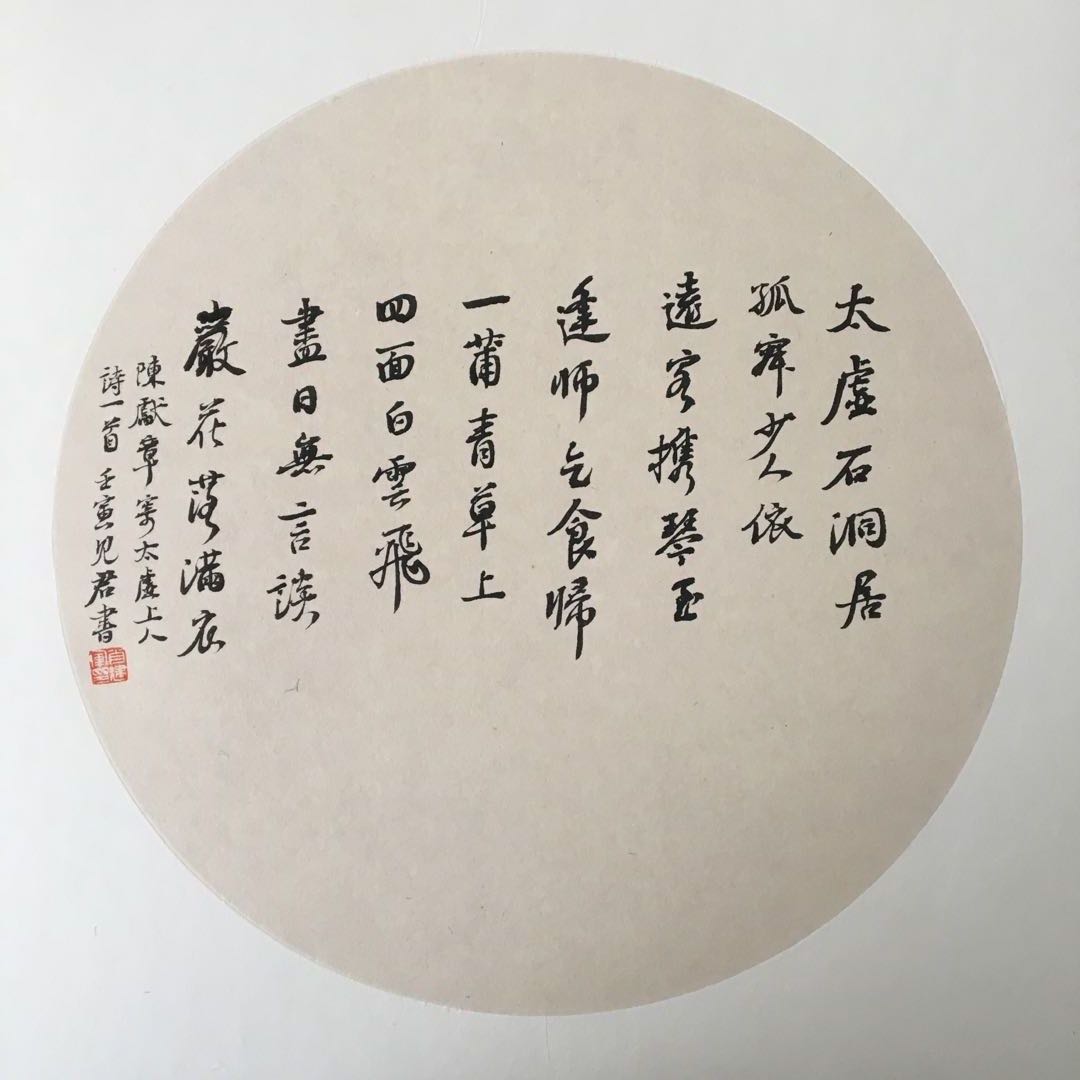 太虛石洞居
孤寂少人依
遠客携琴至
逢師乞食歸
一蒲青草上
四面白雲飛
盡日無言談
巖花落滿衣
陳獻章寄太虛上人
詩一首 壬寅児君書